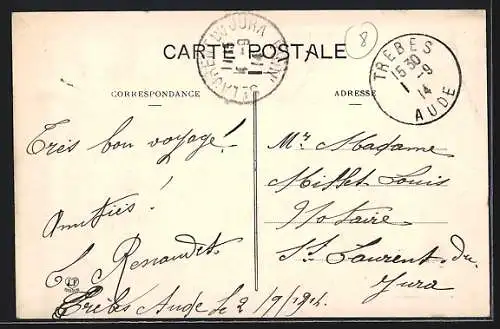 CARTE POSTALE
CORRESPONDANCE
ADRESSE
TREBES
15 30
1 -9
14
AUDE
8
Très bon voyage!
Amitiés!
L. Renaudet
Trèbes Aude le 2/9/1914.
Mr. Madame
Millet Louis
Notaire
St. Laurent-du-
Jura